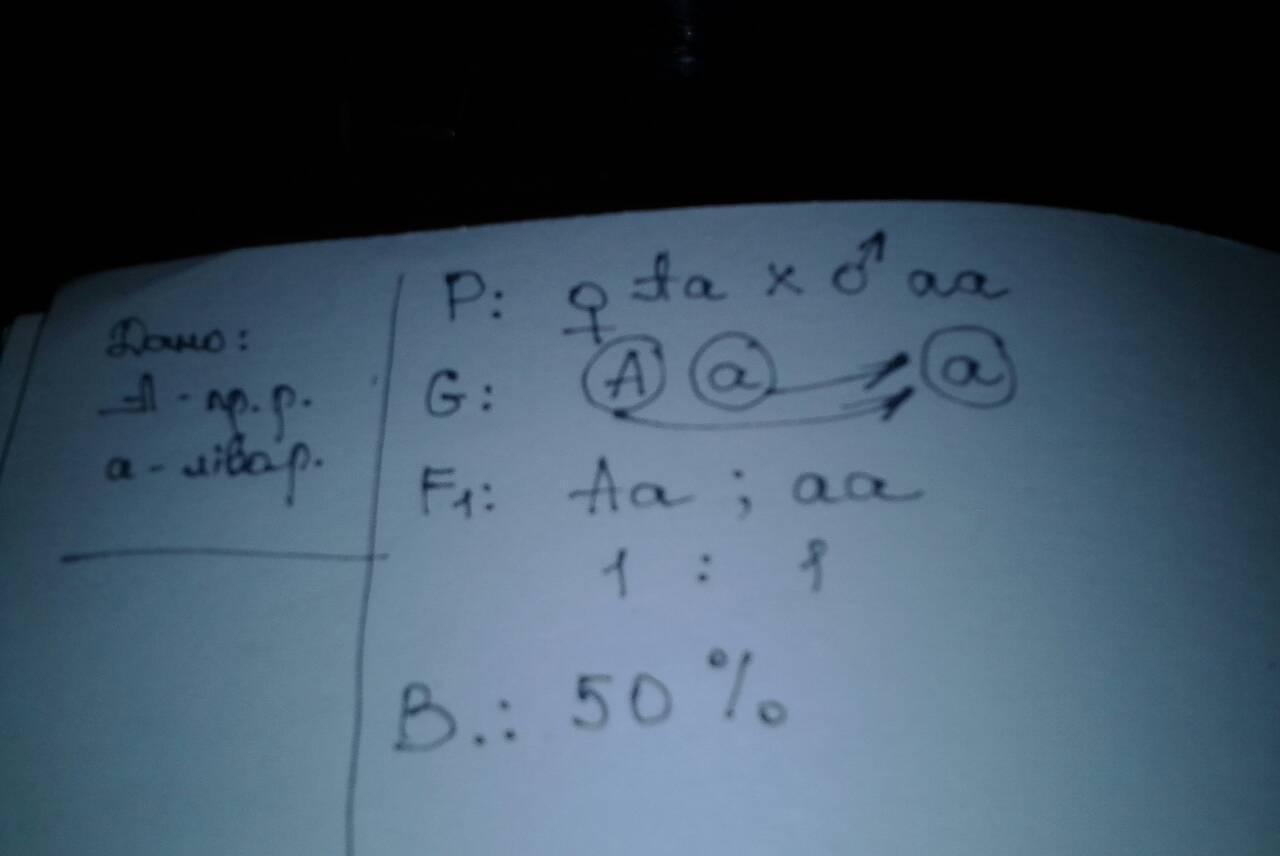 Дано:
А - пр. р.
а - лівор.
P: ♀ Aa × ♂ aa
G: A a a
F1: Aa ; aa
1 : 1
В.: 50 %